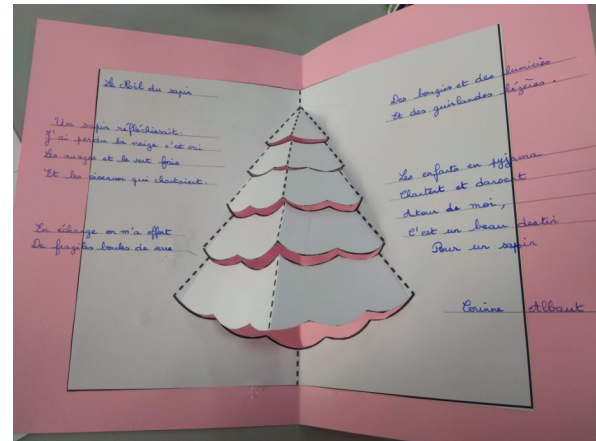 Le Noël du sapin
Un sapin réfléchissait:
J'ai perdu la neige c'est vrai
Les nuages et le vent frais
Et les oiseaux qui chantaient.
En échange on m'a offert
De fragiles boules de verre
Des bougies et des lumières
Et des guirlandes légères.
Les enfants en pyjama
Chantent et dansent
Autour de moi,
C'est un beau destin
Pour un sapin
Corinne Albaut